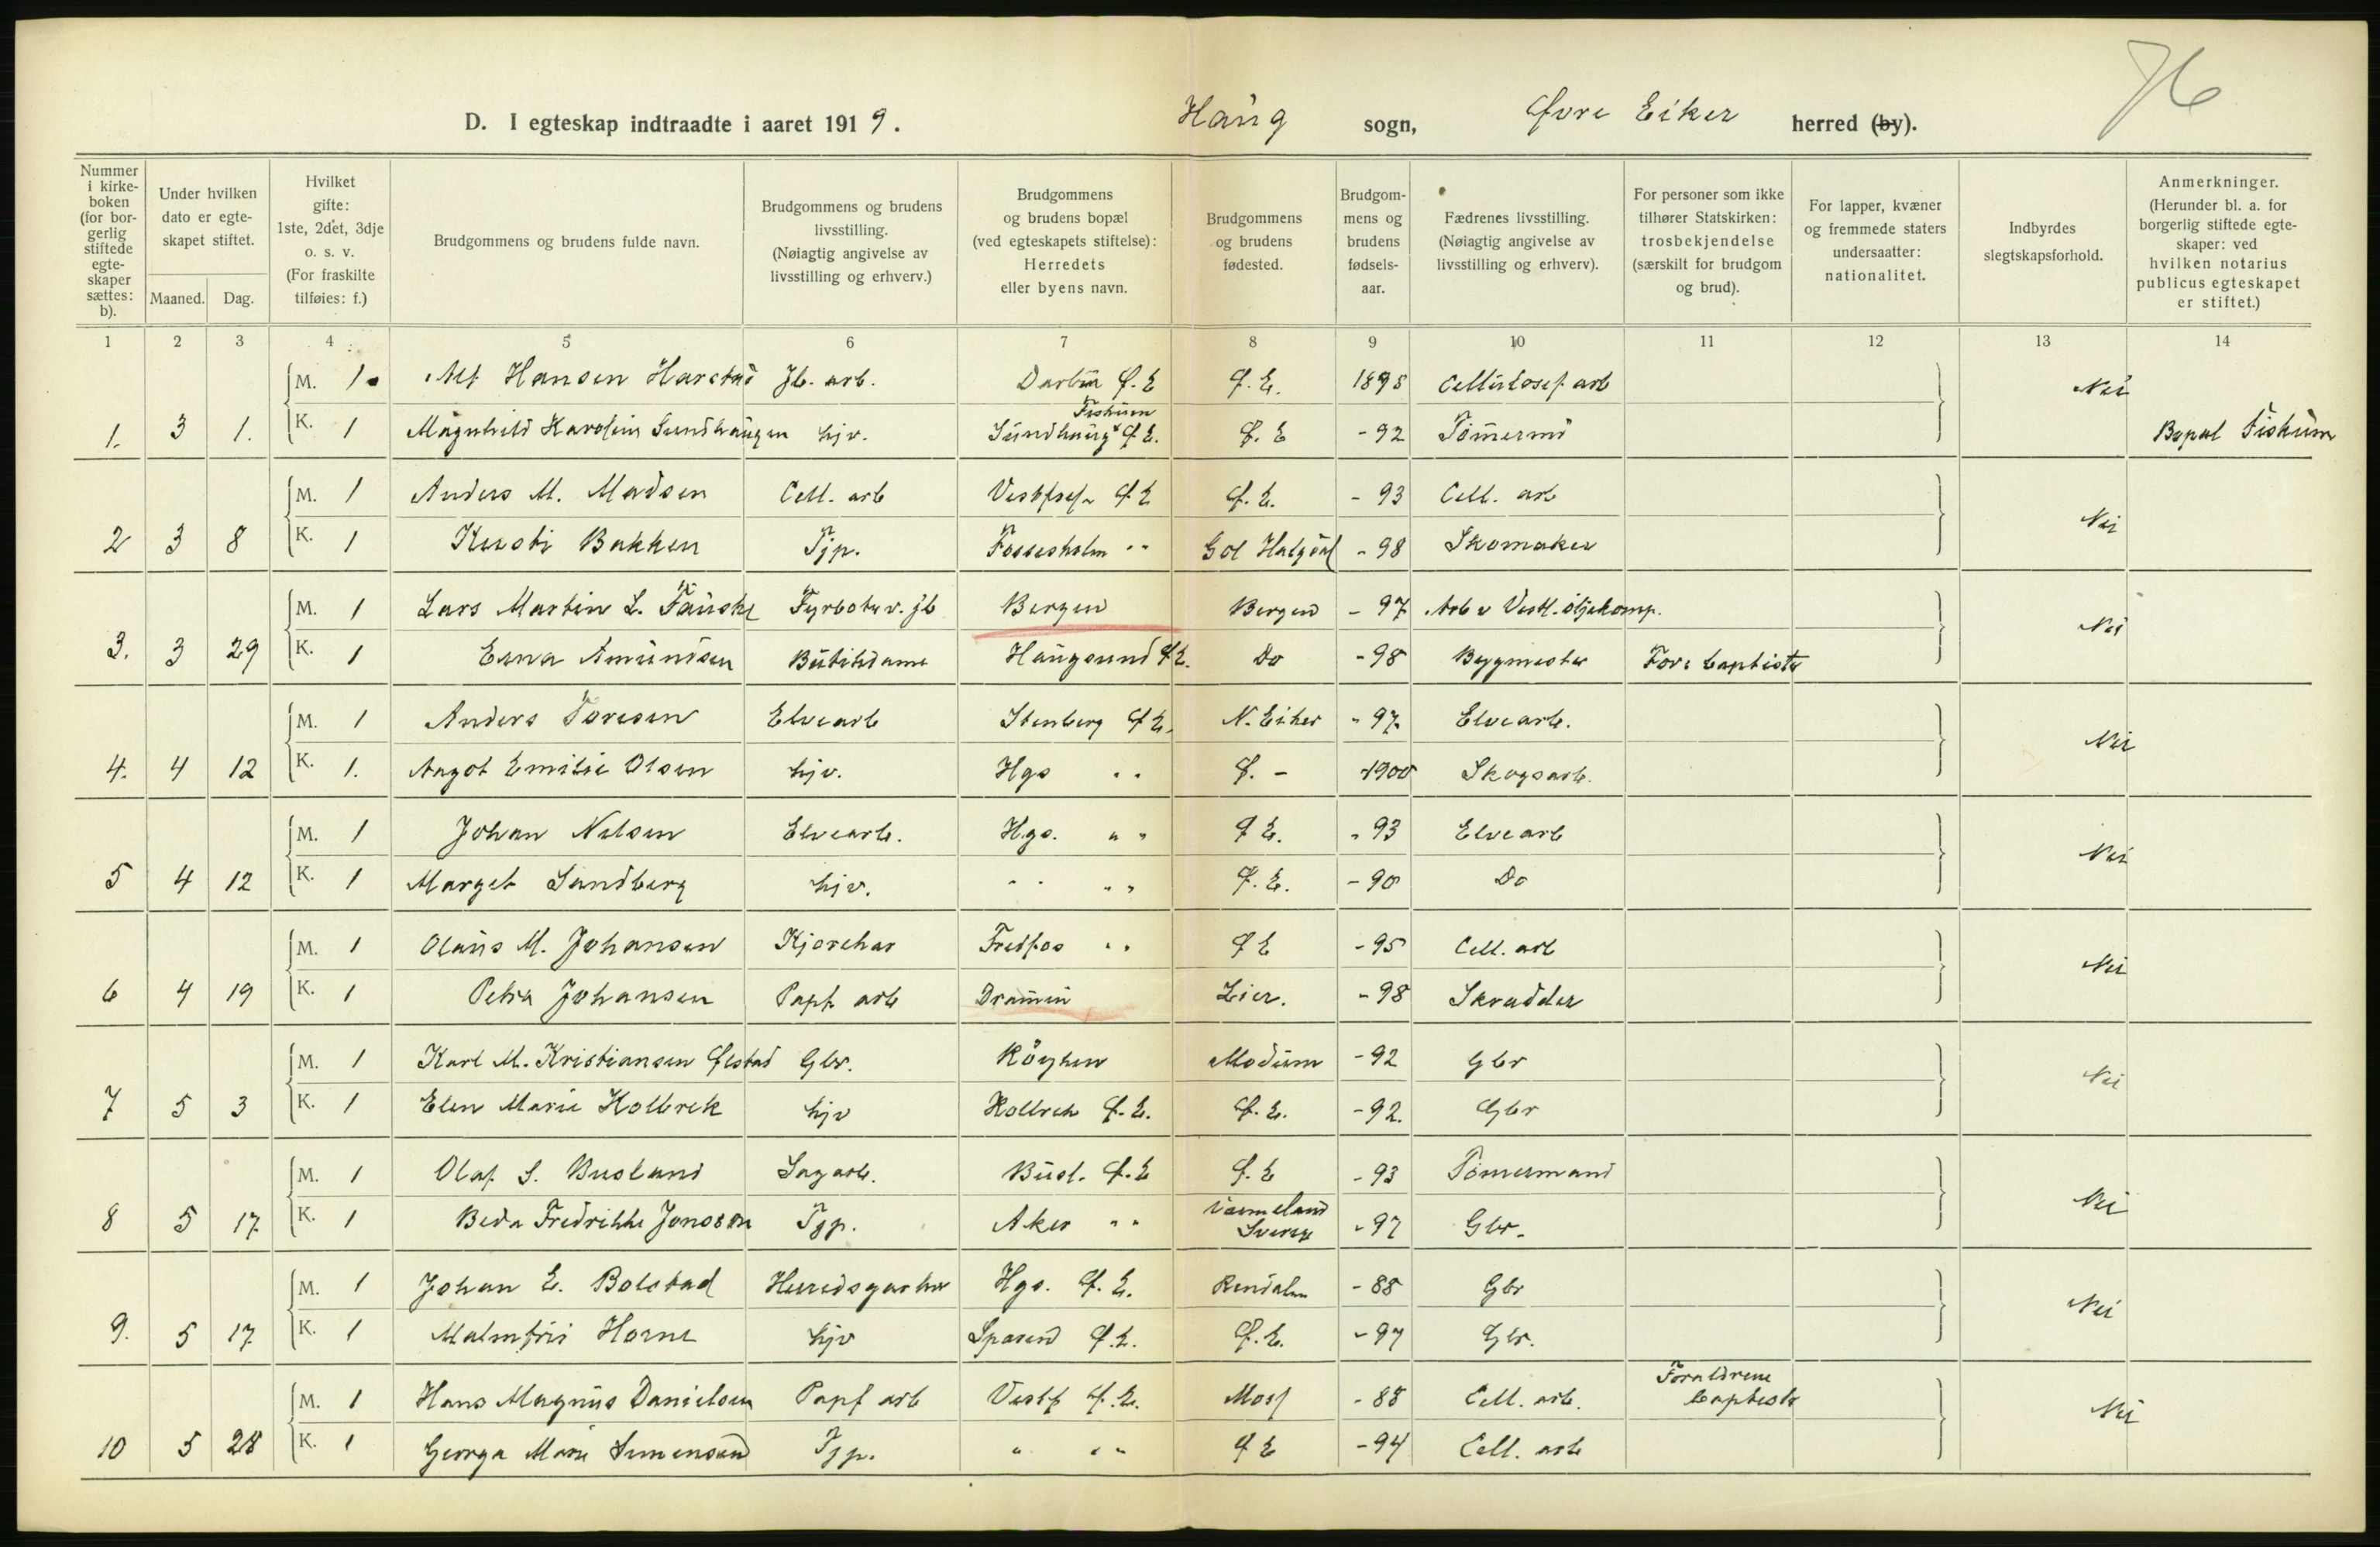 76
D. I egteskap indtraadte i aaret 1919. Haug sogn, Øvre Eiker herred (by).
Nummer i kirkeboken (for borgerlig stiftede egteskaper sættes: b).
Under hvilken dato er egteskapet stiftet.
Maaned. Dag.
Hvilket gifte: 1ste, 2det, 3dje o. s. v. (For fraskilte tilføies: f.)
Brudgommens og brudens fulde navn.
Brudgommens og brudens livsstilling. (Nøiagtig angivelse av livsstilling og erhverv.)
Brudgommens og brudens bopæl (ved egteskapets stiftelse): Herredets eller byens navn.
Brudgommens og brudens fødested.
Brudgommens og brudens fødselsaar.
Fædrenes livsstilling. (Nøiagtig angivelse av livsstilling og erhverv).
For personer som ikke tilhører Statskirken: trosbekjendelse (særskilt for brudgom og brud).
For lapper, kvæner og fremmede staters undersaatter: nationalitet.
Indbyrdes slegtskapsforhold.
Anmerkninger. (Herunder bl. a. for borgerlig stiftede egteskaper: ved hvilken notarius publicus egteskapet er stiftet.)
1 2 3 4 5 6 7 8 9 10 11 12 13 14
M. 1 Alf Hansen Harstad Jb. arb. Darbu Ø. E Ø. E. 1895 Cellulosef. arb Nei
1. 3 1. K. 1 Magnhild Karoline Sundhaugen hjv. Sundhaug Fiskum Ø E. Ø. E - 92 Tömermd Bopæl Fiskum
M. 1 Anders M. Madsen Cell. arb Vestfos Ø E Ø. E. - 93 Cell. arb
2 3 8 K. 1 Kirsti Bakken Tjp. Fossesholm " Gol Halgdal - 98 Skomaker Nei
M. 1 Lars Martin L. Fauske Fyrbøter v. Jb Bergen Bergen - 97 Arb v Vestl. oljekomp.
3. 3 29 K. 1 Erna Amundsen Butikdame Haugsund Ø E. Do - 98 Bygmester For. baptister Nei
M. 1 Anders Toresen Elvearb Stenberg Ø E. N. Eiker - 97 Elvearb.
4. 4 12 K. 1. Aagot Emilie Olsen hjv. Hgs " Ø. - 1900 Skogsarb. Nei
M. 1 Johan Nilsen Elvearb. Hgs. " " Ø E. - 93 Elvearb
5 4 12 K. 1 Marget Sandberg hjv. " " Ø. E. - 90 Do Nei
M. 1 Olaus M. Johansen Kjørekar Fredfos " Ø E - 95 Cell. arb
6 4 19 K. 1 Petra Johansen Papf arb Drammen Lier. - 98 Skrædder Nei
M. 1 Karl M. Kristiansen Ølstad Gbr. Röyken Modum - 92 Gbr
7 5 3 K. 1 Elen Marie Kolbrek hjv Kolbrek Ø. E. Ø. E. - 92. Gbr Nei
M. 1 Olaf S. Busland Sagarb. Busl. Ø. E Ø. E - 93 Tömermand
8 5 17 K. 1 Beda Fredrikke Jonsson Tjp. Aker " Värmeland Sverige - 97 Gbr. Nei
M. 1 Johan E. Bolstad Herredsgartner Hgs. Ø. E. Rendalen - 88 Gbr
9. 5 17 K. 1 Malmfrid Horne hjv Sparend Ø. E. Ø. E. - 97 Gbr. Nei
M. 1 Hans Magnus Danielsen Papf arb Vestf Ø. E. Moss - 88 Cell. arb. Forældrene baptister
10 5 28 K. 1 Georga Marie Simensen Tjp. " " Ø E - 94 Cell. arb Nei